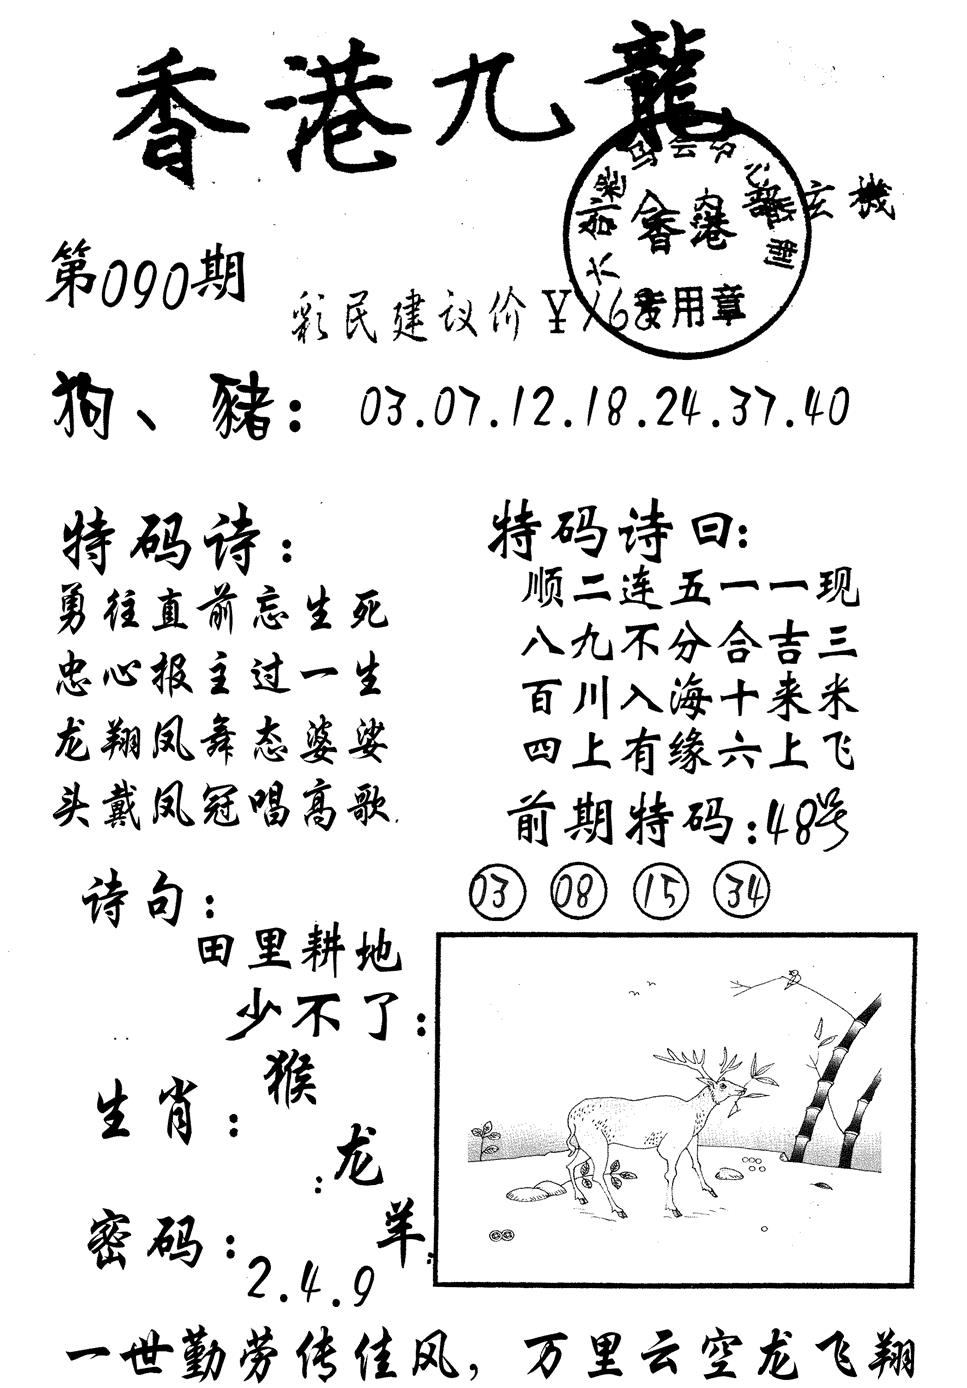 香港九龍
玄機
香港
专用章
第090期
彩民建议价¥168
狗、豬：03.07.12.18.24.37.40
特码诗：
勇往直前忘生死
忠心报主过一生
龙翔凤舞态婆娑
头戴凤冠唱高歌.
特码诗曰：
顺二连五一一现
八九不分合吉三
百川入海十来米
四上有缘六上飞
前期特码：48号
03 08 15 34
诗句：
田里耕地
少不了：
生肖：猴
：龙
羊：
密码：
2.4.9
一世勤劳传佳风，万里云空龙飞翔